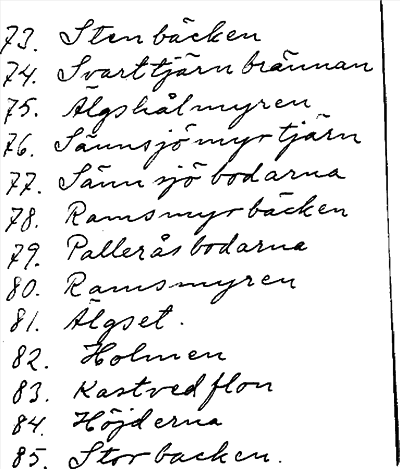 73. Stenbäcken
74. Svarttjärnbrännan
75. Älgshålmyren
76. Sännsjömyrtjärn
77. Sännsjöbodarna
78. Ramsmyrbäcken
79. Palleråsbodarna
80. Ramsmyren
81. Älgset.
82. Holmen
83. Kastvedflon
84. Höjderna
85. Storbacken.